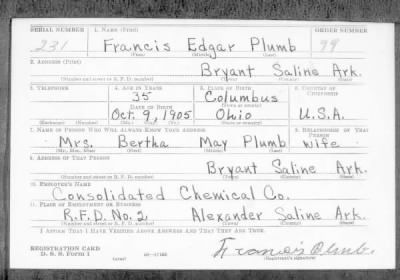 SERIAL NUMBER 1. NAME (Print) ORDER NUMBER
231 Francis Edgar Plumb 99
(First) (Middle) (Last)
2. ADDRESS (Print)
Bryant Saline Ark.
(Number and street or R. F. D. number) (Town) (County) (State)
3. TELEPHONE 4. AGE IN YEARS 5. PLACE OF BIRTH 6. COUNTRY OF CITIZENSHIP
35 Columbus
DATE OF BIRTH (Town or county)
Oct. 9, 1905 Ohio U.S.A.
(Exchange) (Number) (Mo.) (Day) (Yr.) (State or country)
7. NAME OF PERSON WHO WILL ALWAYS KNOW YOUR ADDRESS 8. RELATIONSHIP OF THAT PERSON
Mrs. Bertha May Plumb wife
(Mr., Mrs., Miss) (First) (Middle) (Last)
9. ADDRESS OF THAT PERSON
Bryant Saline Ark.
(Number and street or R. F. D. number) (Town) (County) (State)
10. EMPLOYER'S NAME
Consolidated Chemical Co.
11. PLACE OF EMPLOYMENT OR BUSINESS
R.F.D. No. 2 Alexander Saline Ark.
(Number and street or R. F. D. number) (Town) (County) (State)
I AFFIRM THAT I HAVE VERIFIED ABOVE ANSWERS AND THAT THEY ARE TRUE.
REGISTRATION CARD
D. S. S. Form 1 (Registrant's signature)